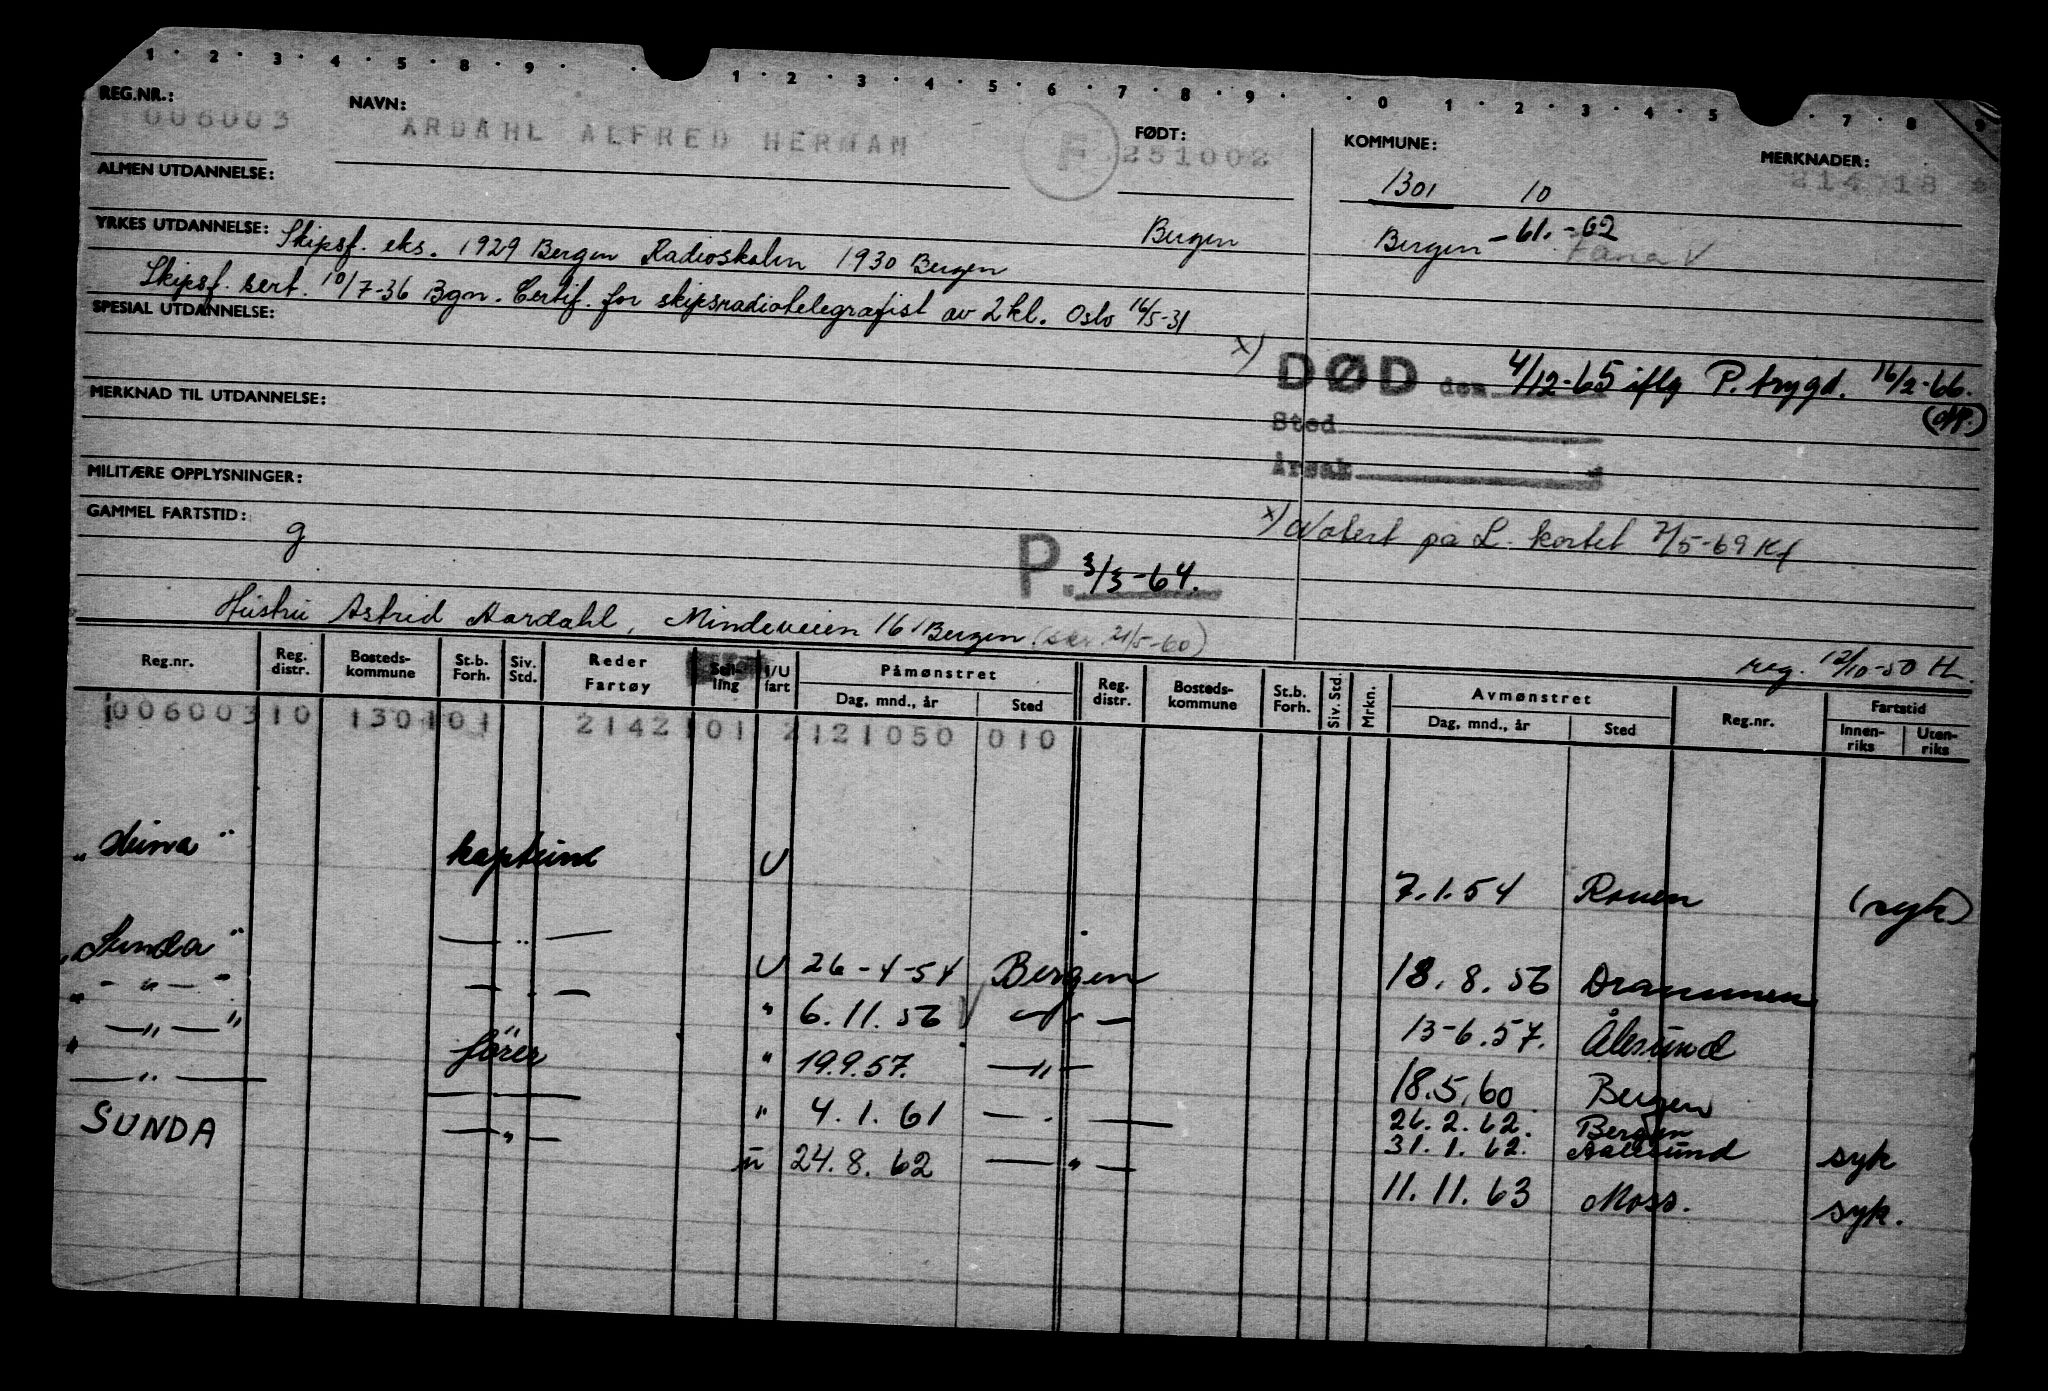 1 · 2 · 3 · 4 · 5 · 8 · 9 · · 1 · 2 · 3 · 4 · 5 · 6 · 7 · 8 · 9 · · 0 · 1 · 2 · 3 · 4 · 5 · 7 · 8 · 9
REG.NR.: 006003 NAVN: ARDAHL ALFRED HERMAN F FØDT: 251002 KOMMUNE: MERKNADER: 214 18
ALMEN UTDANNELSE: 1301 10
YRKES UTDANNELSE: Skipsf. eks. 1929 Bergen Radioskolen 1930 Bergen Bergen Bergen -61.-62 Fana V
Skipsf. sert. 10/7-36 Bgn. Certif. for skipsradiotelegrafist av 2 kl. Oslo 16/5-31
SPESIAL UTDANNELSE:
x) DØD den 4/12-65 iflg P. trygd. 16/2-66.
MERKNAD TIL UTDANNELSE: Sted
Årsak
MILITÆRE OPPLYSNINGER:
GAMMEL FARTSTID: g x) Notert på L. kortet 7/5-69 Kf
P. 3/3-64.
Hustru Astrid Aardahl, Mindeveien 16, Bergen. (skr. 21/5-60)
reg. 12/10-50 H.
Reg.nr. Reg. distr. Bosteds-kommune St.b. Forh. Siv. Std. Reder Fartøy Seil-ling I/U fart Påmønstret Dag, mnd., år Sted Reg. distr. Bosteds-kommune St.b. Forh. Siv. Std. Mrkn. Avmønstret Dag, mnd., år Sted Reg.nr. Fartstid Innen-riks Uten-riks
006003 10 1301 01 2142 101 2121050 010
kaptein U 7.1.54 Rouen (syk)
"Sunda" — " — U 26-4-54 Bergen 18.8.56 Drammen
" — " — " — " — " 6.11.56 V — " — 13-6.57. Ålesund
" — " — " fører " 19.9.57. — " — 18.5.60 Bergen
— " — — — " 4.1.61 — . — 26.2.62. Bergen
31.1.62. Aalesund syk
SUNDA — " — u 24.8.62 — " — 11.11.63 Moss. syk.